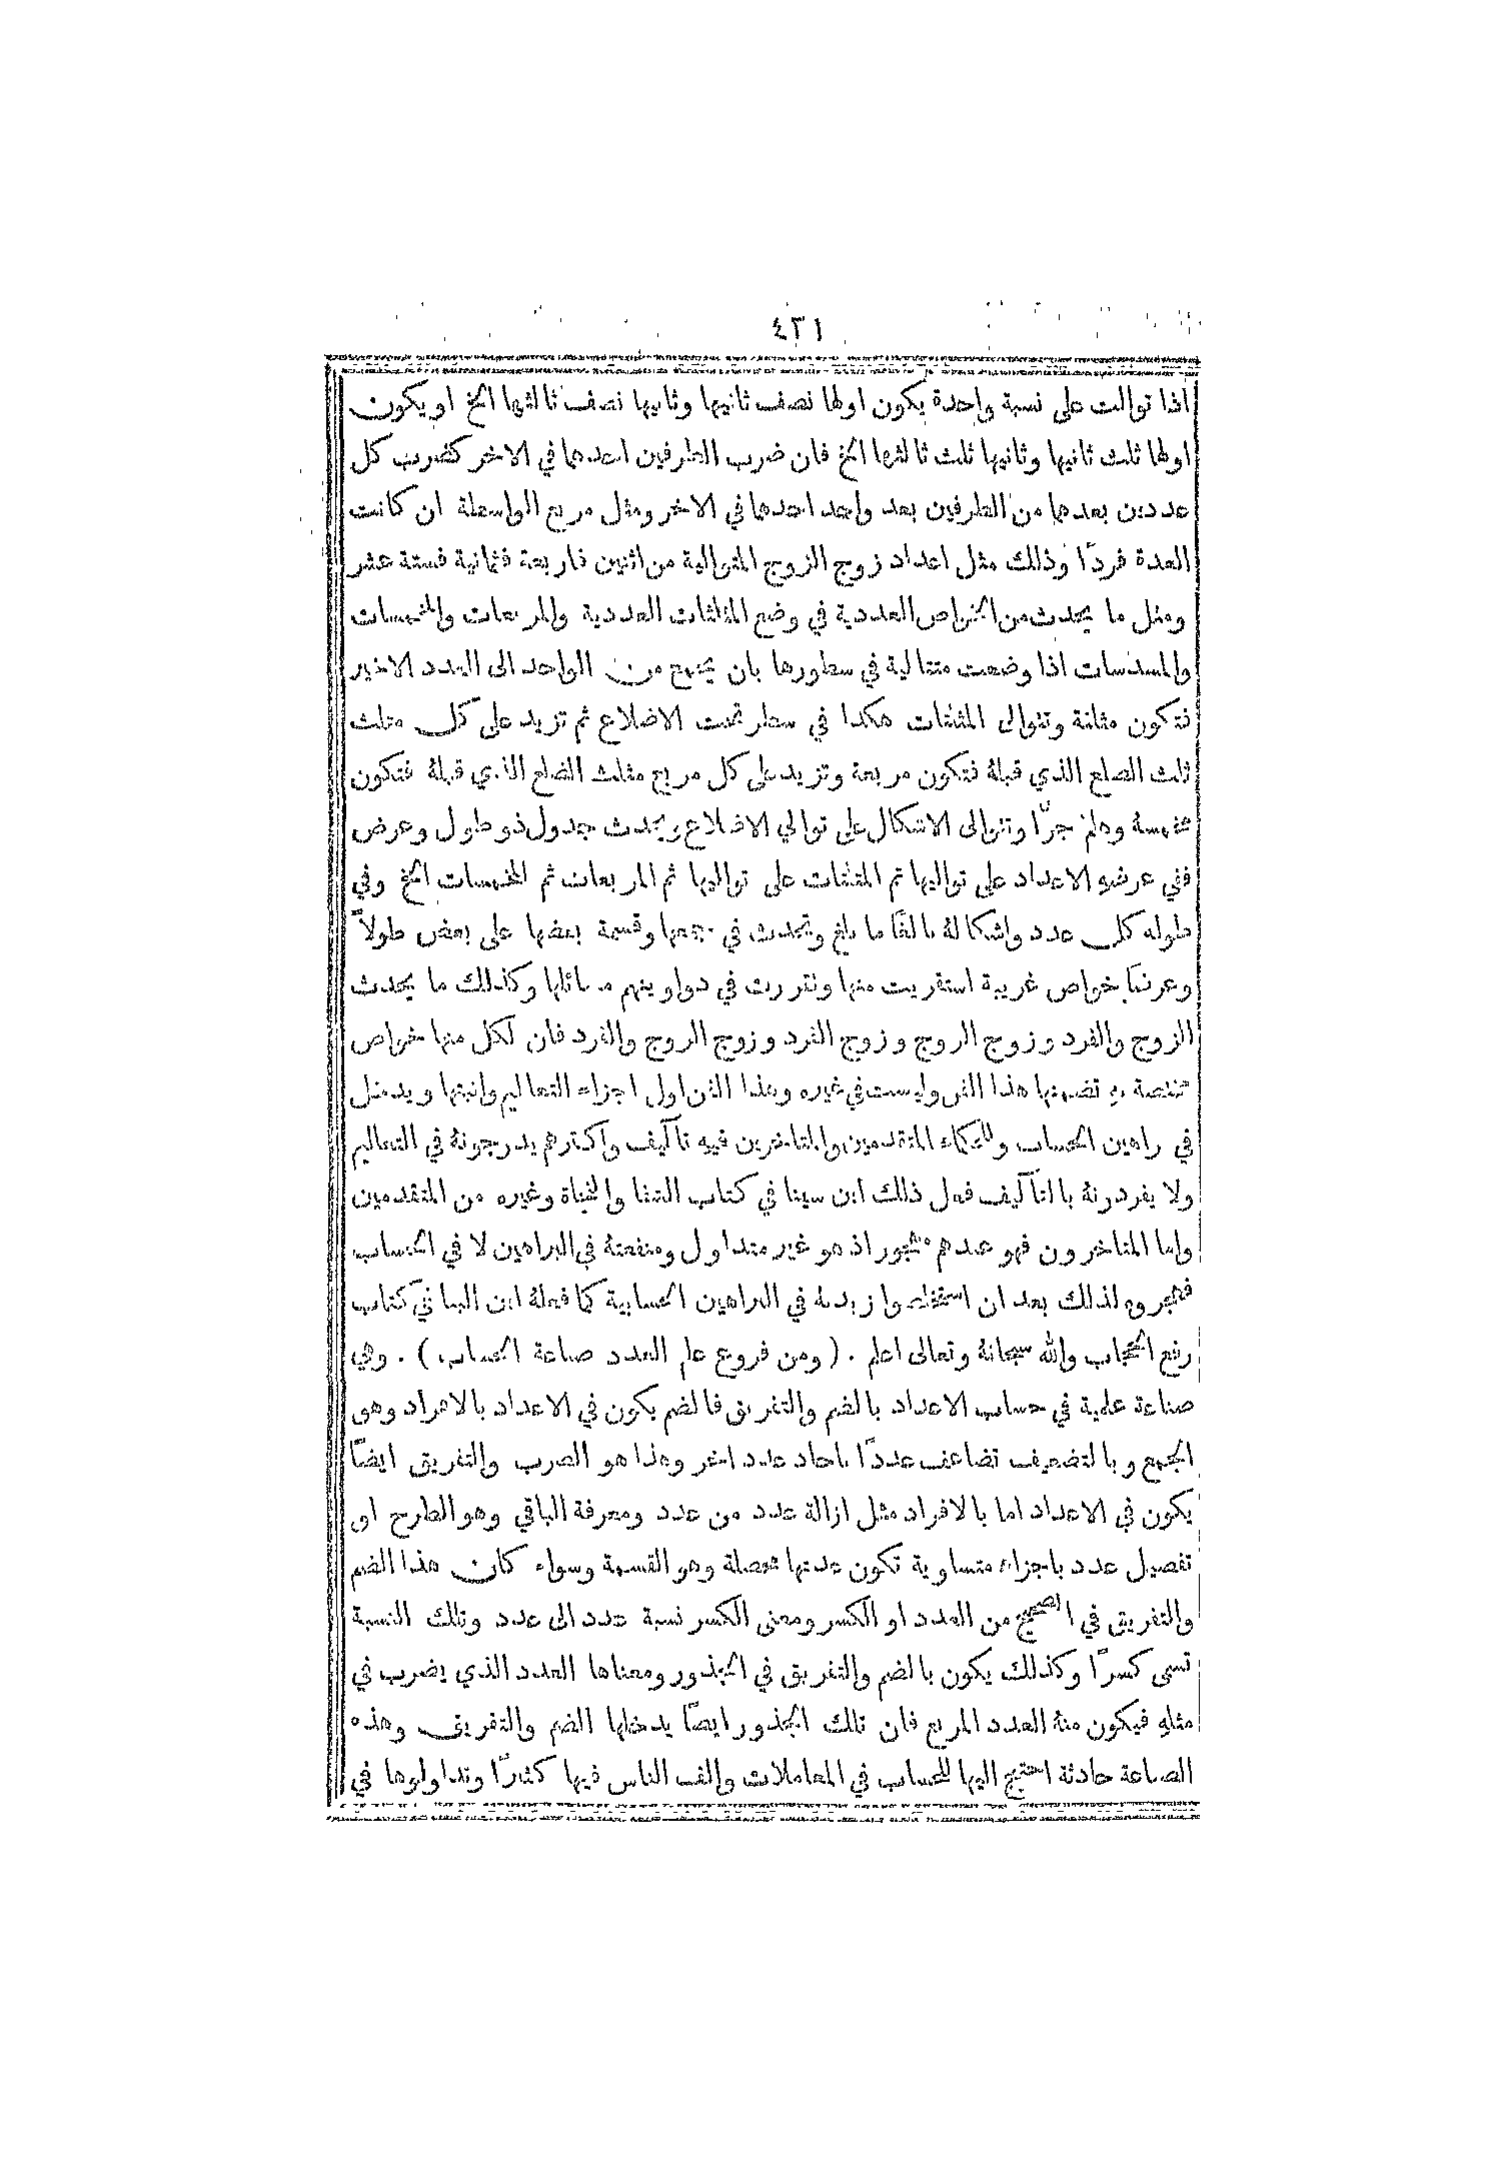 ٤٢١
اذا توالت على نسبة واحدة يكون اولها نصف ثانيها وثانيها نصف ثالثها الخ او يكون
اولها ثلث ثانيها وثانيها ثلث ثالثها الخ فان ضرب الطرفين احدهما في الاخر كضرب كل
عددين بعدهما من الطرفين بعد واحد احدهما في الاخر ومثل مربع الواسطة ان كانت
العدة فردًا وذلك مثل اعداد زوج الزوج المتوالية من اثنين فاربعة فثمانية فستة عشر
ومثل ما يحدث من الخواص العددية في وضع المثلثات العددية والمربعات والمخمسات
والمسدسات اذا وضعت متتالية في سطورها بان يجمع من الواحد الى العدد الاخير
فتكون مثلثة وتتوالى المثلثات هكذا في سطر تحت الاضلاع ثم تزيد على كل مثلث
ثلث الضلع الذي قبلهُ فتكون مربعة وتزيد على كل مربع مثلث الضلع الذي قبلهُ فتكون
مخمسة وهلم جرًّا وتتوالى الاشكال على توالي الاضلاع ويحدث جدول ذو طول وعرض
ففي عرضهِ الاعداد على تواليها ثم المثلثات على تواليها ثم المربعات ثم المخمسات الخ وفي
طوله كل عدد واشكالهُ بالغًا ما بلغ وتحدث في جمعها وقسمة بعضها على بعض طولاً
وعرضًا خواص غريبة استقريت منها وتقررت في دواوينهم مسائلها وكذلك ما يحدث
الزوج والفرد وزوج الزوج وزوج الفرد وزوج الزوج والفرد فان لكل منها خواص
مختصة بهِ تضمنها هذا الفن وليست في غيره وهذا الفن اول اجزاء التعاليم واثبتها ويدخل
في براهين الحساب وللحكماء المتقدمين والمتاخرين فيهِ تآليف واكثرهم يدرجونهُ في التعاليم
ولا يفردونهُ بالتآليف فعل ذلك ابن سينا في كتاب الشفا والنجاة وغيره من المتقدمين
واما المتاخرون فهو عندهم مهجور اذ هو غير متداول ومنفعتهُ في البراهين لا في الحساب
فهجروه لذلك بعد ان استخلصوا زبدتهُ في البراهين الحسابية كما فعلهُ ابن البنا في كتاب
رفع الحجاب والله سبحانهُ وتعالى اعلم . (ومن فروع علم العدد صناعة الحساب) . وهي
صناعة علمية في حساب الاعداد بالضم والتفريق فالضم يكون في الاعداد بالافراد وهو
الجمع وبالتضعيف تضاعف عددًا باحاد عدد اخر وهذا هو الضرب والتفريق ايضًا
يكون في الاعداد اما بالافراد مثل ازالة عدد من عدد ومعرفة الباقي وهو الطرح او
تفصيل عدد باجزاء متساوية تكون عدتها محصلة وهو القسمة وسواء كان هذا الضم
والتفريق في الصحيح من العدد او الكسر ومعنى الكسر نسبة عدد الى عدد وتلك النسبة
تسمى كسرًا وكذلك يكون بالضم والتفريق في الجذور ومعناها العدد الذي يضرب في
مثلهِ فيكون منهُ العدد المربع فان تلك الجذور ايضًا يدخلها الضم والتفريق وهذه
الصناعة حادثة احتيج اليها للحساب في المعاملات والف الناس فيها كثيرًا وتداولوها في